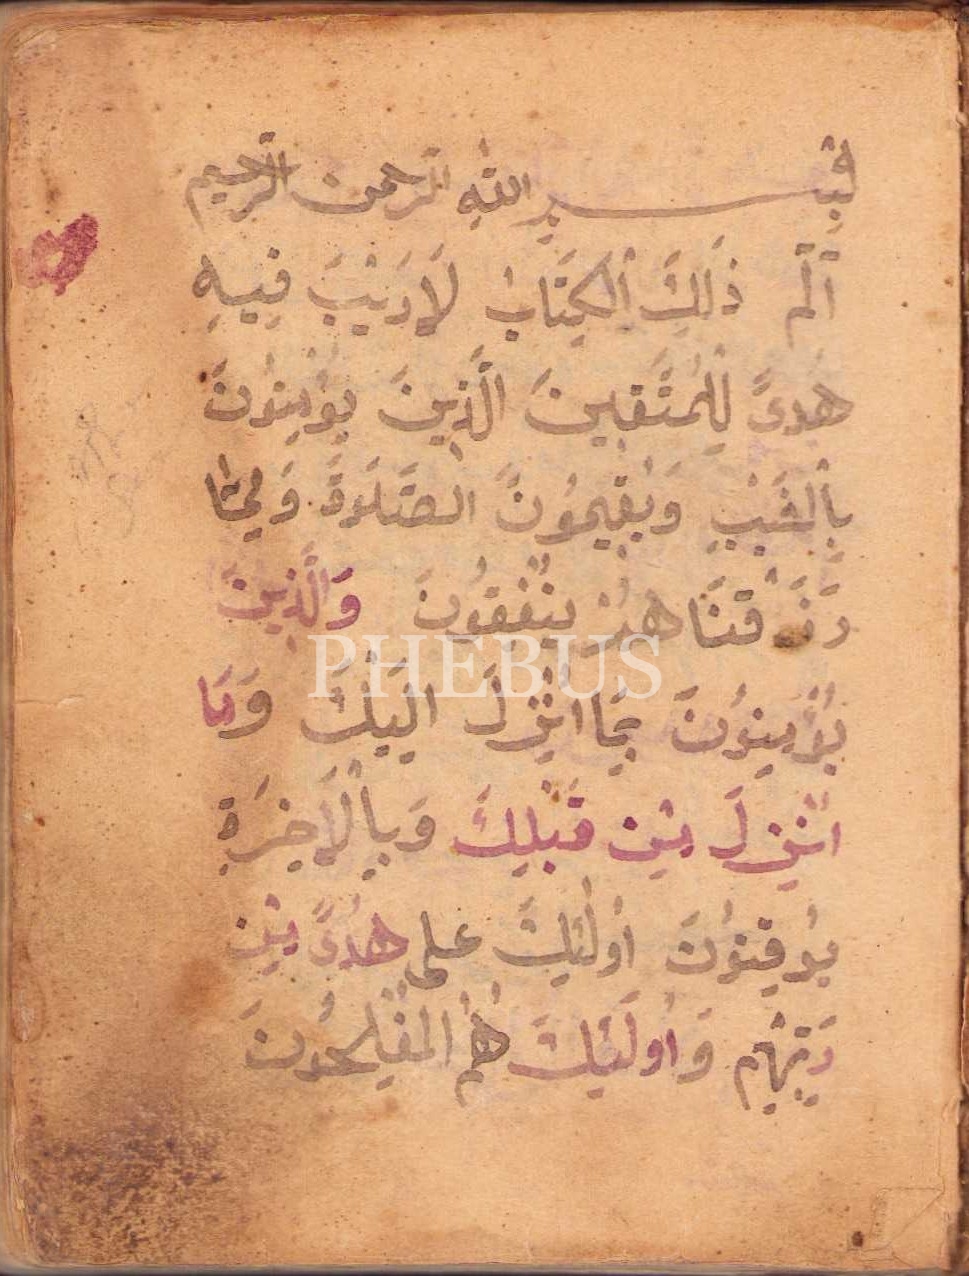 بسم الله الرحمن الرحيم
الٓمٓ ذَلِكَ الْكِتَابُ لَا رَيْبَ فِيهِ
هُدىً لِلْمُتَّقِينَ الَّذِينَ يُؤْمِنُونَ
بِالْغَيْبِ وَيُقِيمُونَ الصَّلَوةَ وَمِمَّا
رَزَقْنَاهُمْ يُنْفِقُونَ وَالَّذِينَ
PHEBUS
يُؤْمِنُونَ بِمَا اُنْزِلَ اِلَيْكَ وَمَا
اُنْزِلَ مِنْ قَبْلِكَ وَبِالْاَخِرَةِ
يُوقِنُونَ اُولٰئِكَ عَلى هُدىً مِنْ
رَبِّهِمْ وَاُولَئِكَ هُمُ الْمُفْلِحُونَ